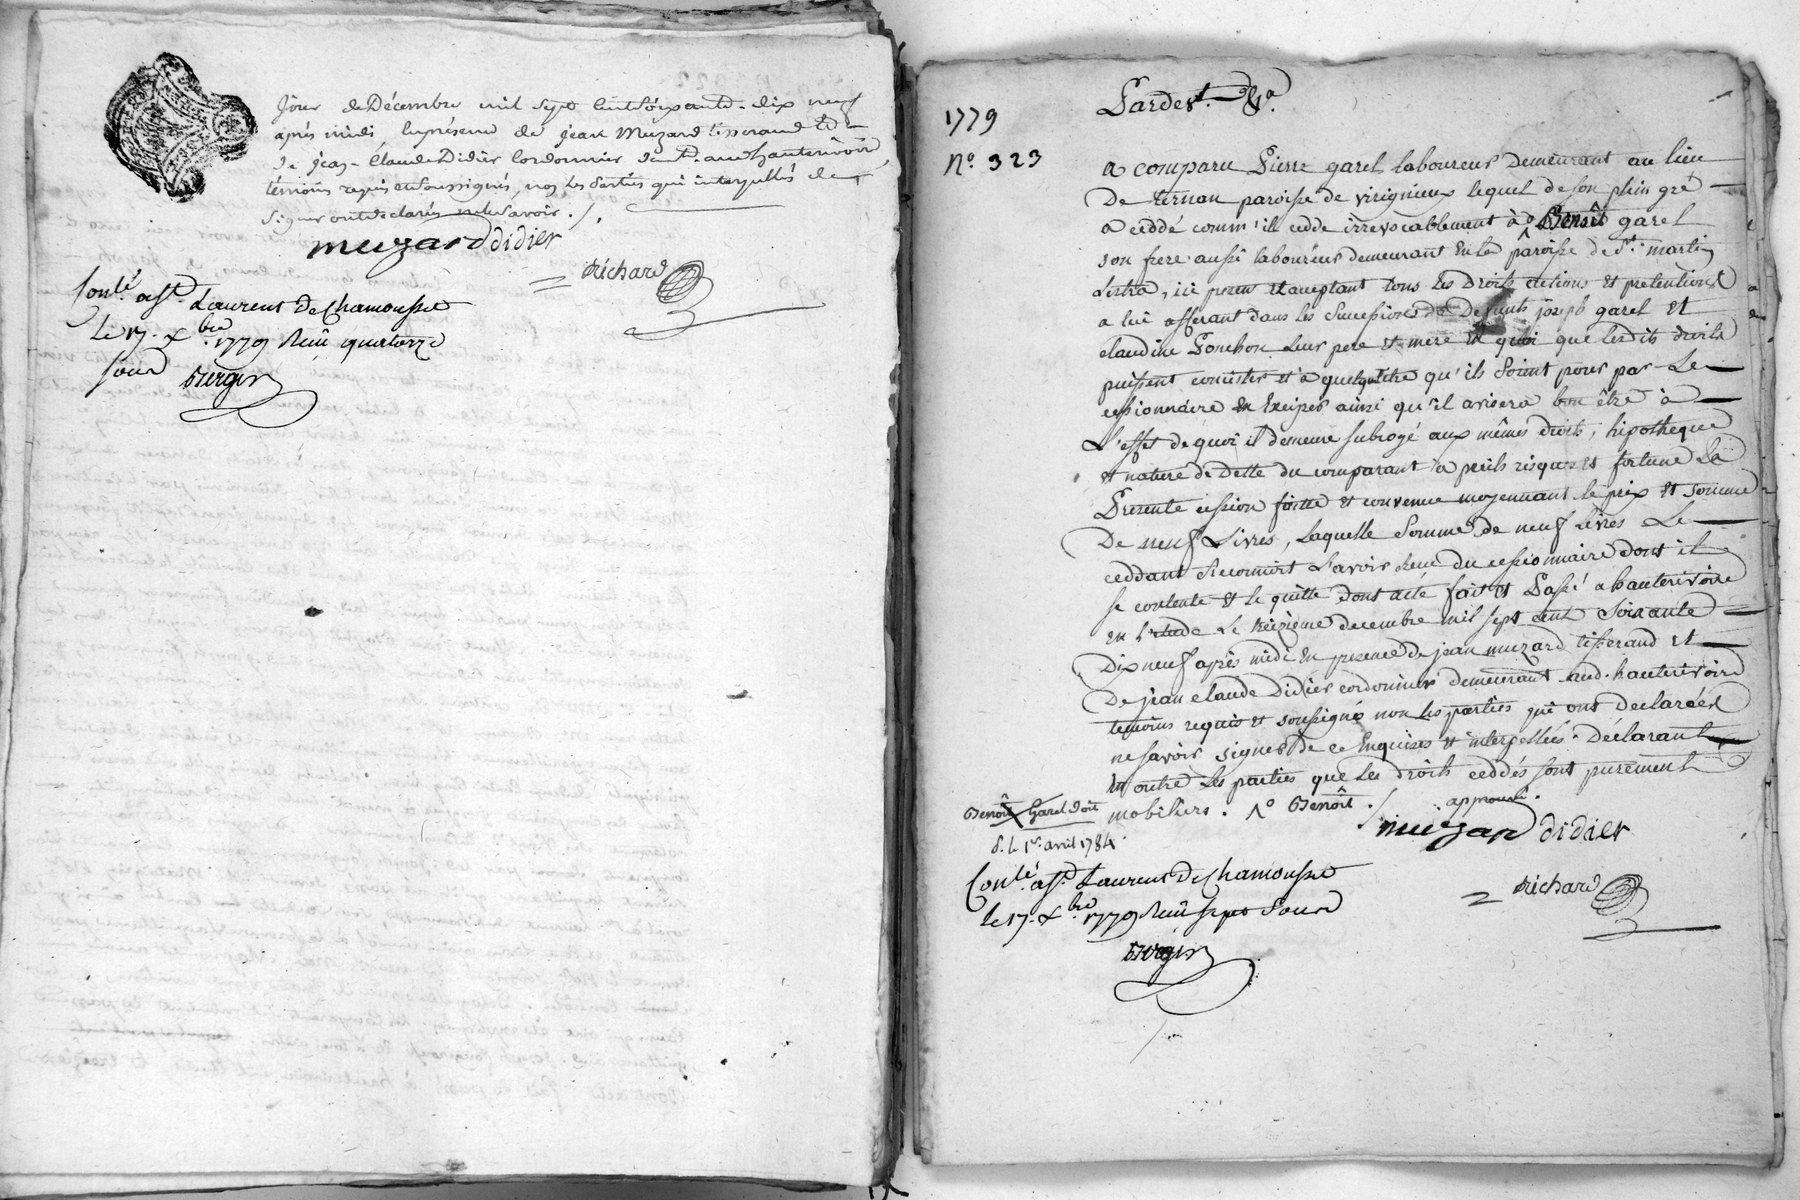 jour de Décembre mil sept cent soixante-dix neuf
après midi en présence de jean Muzard tisserand et
de jean-Claude Didier Cordonnier dem.t aud hauterivoire
témoins requis et soussignés, non les parties qui interpellés de
signer ont déclarés ne le savoir ./.
muzard didier
richard
Conlé. a st Laurent de Chamousset
le 17. xbre 1779 Reçu quatorze
sous
1779
N.° 323
Pardev.t &a.
a comparu Pierre garel laboureur demeurant au lieu
De ternan paroisse de virignieux lequel de son plein gré
a ceddé comm'il cedde irrevocablement à ^° Benoît garel
son frere aussi laboureur demeurant en la paroisse de st. martin
Lestra, ici present et acceptant tous les Droits actions et pretentions
a lui afferant dans les successions de Defunts joseph garel et
claudine Ponchon leur pere et mere en quoi que lesdits droits
puissent consister et a quelque titre qu'ils soient pour par Le
cessionnaire en Exciper ainsi qu'il avisera bon être à
L'effet de quoi il demeure subrogé aux mêmes droits, hipotheque
et nature de Dette du comparant a perils risques et fortune La
Presente cession faitte et convenue moyennant le prix et somme
De neuf Livres, Laquelle Somme de neuf Livres Le
ceddant Reconnoit L'avoir Reçu du cessionnaire dont il
se contente et le quitte dont acte fait et Passé a hauterivoire
en l'etude le treizieme decembre mil sept cent soixante
Dix neuf après midi en presence de jean muzard tisserand et
De jean claude Didier cordonnier demeurant aud. hauterivoire
temoins requis et soussignés non les parties qui ont declarées
ne savoir signer de ce Enquises et interpellées. Déclarant
en outre les parties que les droits ceddés sont purement
mobiliers. ^° Benoît ./. approuvé.
Benoît Garel doit
d. le 1er. avril 1784.
muzard didier
richard
Conlé. a st Laurent de Chamousset
le 17. xbre 1779 Reçu sept sous